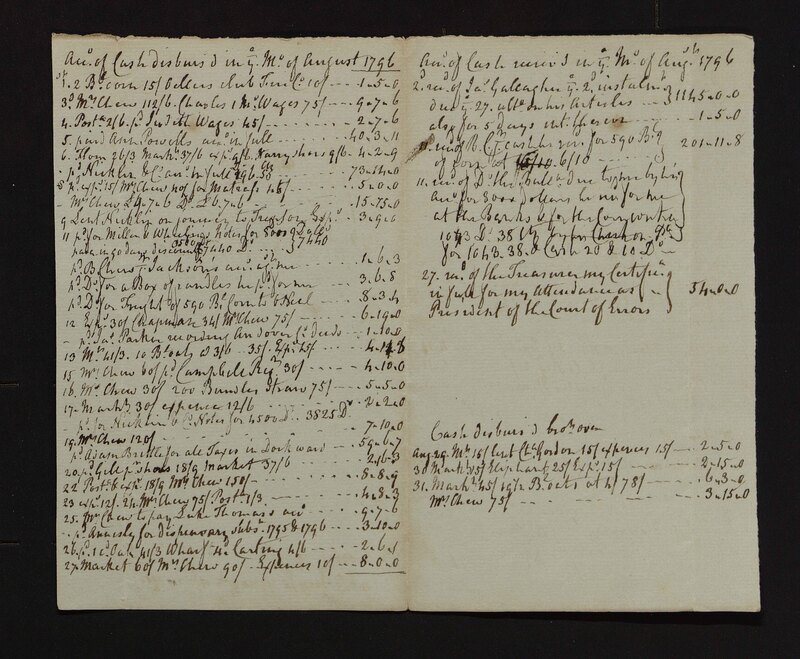 Acct. of Cash disburs'd in ye. Mo. of August 1796
2 Bs. corn 15/ Oellers club 10/ --- 1-5-0
3d Mrs. Chew 112/6 Charles 1 Mo. Wages 75/ --- 9-7-6
4. Post. 2/6 pd. Judith Wages 45/ --- 2-7-6
5. paid Ann Powell's acct. in full --- 40-3-11
6. Flour 26/3 Markt. 37/6 exps. 9/6 Harry shoes 9/6 - 4-2-9
pd. Nicklin &c. acct. in full 196.50 --- 73-14-0
8. exps. 15/ Mrs. Chew 40/ for Matrass 45/ --- 5-0-0
- Mrs. Chew £4-7-6 Do. £6-7-6 --- 15-15-0
9 Lent Nicklin on journey to 3-9-0
11 pd. for Miller & Notes for 8000
60 days discount 7440 Ds. } 7440
pd. B Chew Jackson's acct. agt. me --- 1-6-3
pd. Do. for a Box of candles he pd. for me --- 3-6-8
pd. Do. for Freight of 590 Bs. Corn to --- 8-3-4
12 Exps. 30/ Chapman 34/ Mrs. Chew 75/ --- 6-19-0
- pd. Jas. Parker recording Andover Co. deeds --- 1-10-0
13 Mrs. 41/3. 10 Bs. oats a 3/6 35/ Exps. 15/ --- 4-11-8
15 Mrs. Chew 60/ pd. Campbell 30/ --- 4-10-0
16. Mrs. Chew 30/ 200 Bundles Straw 75/ --- 5-5-0
17. Markt. 30/ expence 12/6 --- 2-2-0
pd. for Nicklin & Co. Notes for 4500 Ds. 3825 Ds.
19. Mrs. Chew 120/ --- 7-10-0
pd. Adam Brittle for all Taxes in Dock ward --- 59-6-7
20 pd. Gill pr. shoes 18/9 market 37/6 --- 2-16-3
22 Post. 6 exps. 18/9 Mrs. Chew 150/ --- 8-8-9
23 exps. 12/. 24. Mrs. Chew 75/ Post. 1/3 --- 4-8-3
25. Mrs. Chew to pay Luke Thomas's acct. --- 9-7-6
- pd. Annesly for dispensary subs. 1795 & 1796 --- 3-10-0
26. pd. 1 cd. Oak 41/3 Wharf. 4d. Carting 4/6 --- 2-6-1
27. Market 60/ Mrs. Chew 90/ Expences 10/ --- 8-0-0
Acct. of Cash receiv'd in ye. Mo. of Augt. 1796
2. recd. of Jas. Gallagher ye. 2d. instalmt.
due ye. 27. ulto. on his articles --- } 1145-0-0
also for 5 days int. thereon --- 1-5-0
recd. of B. C. Jr. cash for 590 Bs.
of corn at 6/10 --- 201-11-8
11. recd. of Do. the balla. due to me by his
acct. for 8000 dollars he recd. for me
at the Banks & for the
1043 Ds. 38
for 1043.38
27. recd. of the Treasurer my Certifica.
in full for my Attendance as
President of the Court of Errors } 54-0-0
Cash disburs'd brot. over
Aug 29. Mrs. 15/ lent Ct. Gordon 15/ expences 15/ --- 2-5-0
30 Markt. 15/ Elephant 25/ Exps. 15/ --- 2-15-0
31. Markt. 45/ 19½ Bs. oats at 4/ 78/ --- 6-3-0
Mrs. Chew 75/ --- 3-15-0